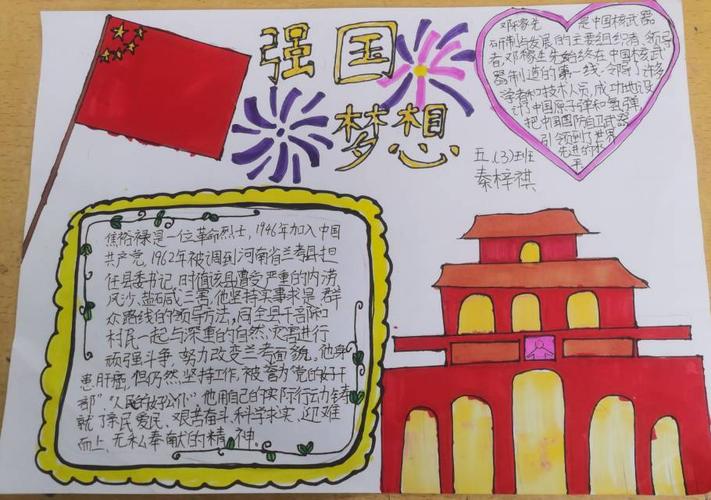 强国
梦想
邓稼先 是中国核武器
研制与发展的主要组织者、领导
者,邓稼先始终在中国核武
器制造的第一线,领了许多
学者和技术人员,成功地设
计了中国原子弹和氢弹,
把中国国防自卫武器
引领到了世界
先进的水
平
五、(3)班
秦梓祺
焦裕禄是一位革命烈士,1946年加入中国
共产党,1962年被调到河南省兰考县担
任县委书记,时值该县遭受严重的内涝
风沙、盐碱三害,他坚持实事求是、群
众路线的领导方法,同全县干部和
村民一起与深重的自然灾害进行
顽强斗争,努力改变兰考面貌。他身
患肝癌,但仍然坚持工作,被誉为“党的好干
部”“人民的好公仆”他用自己的实际行动铸
就了亲民爱民、艰苦奋斗、科学求实、迎难
而上、无私奉献的精神。